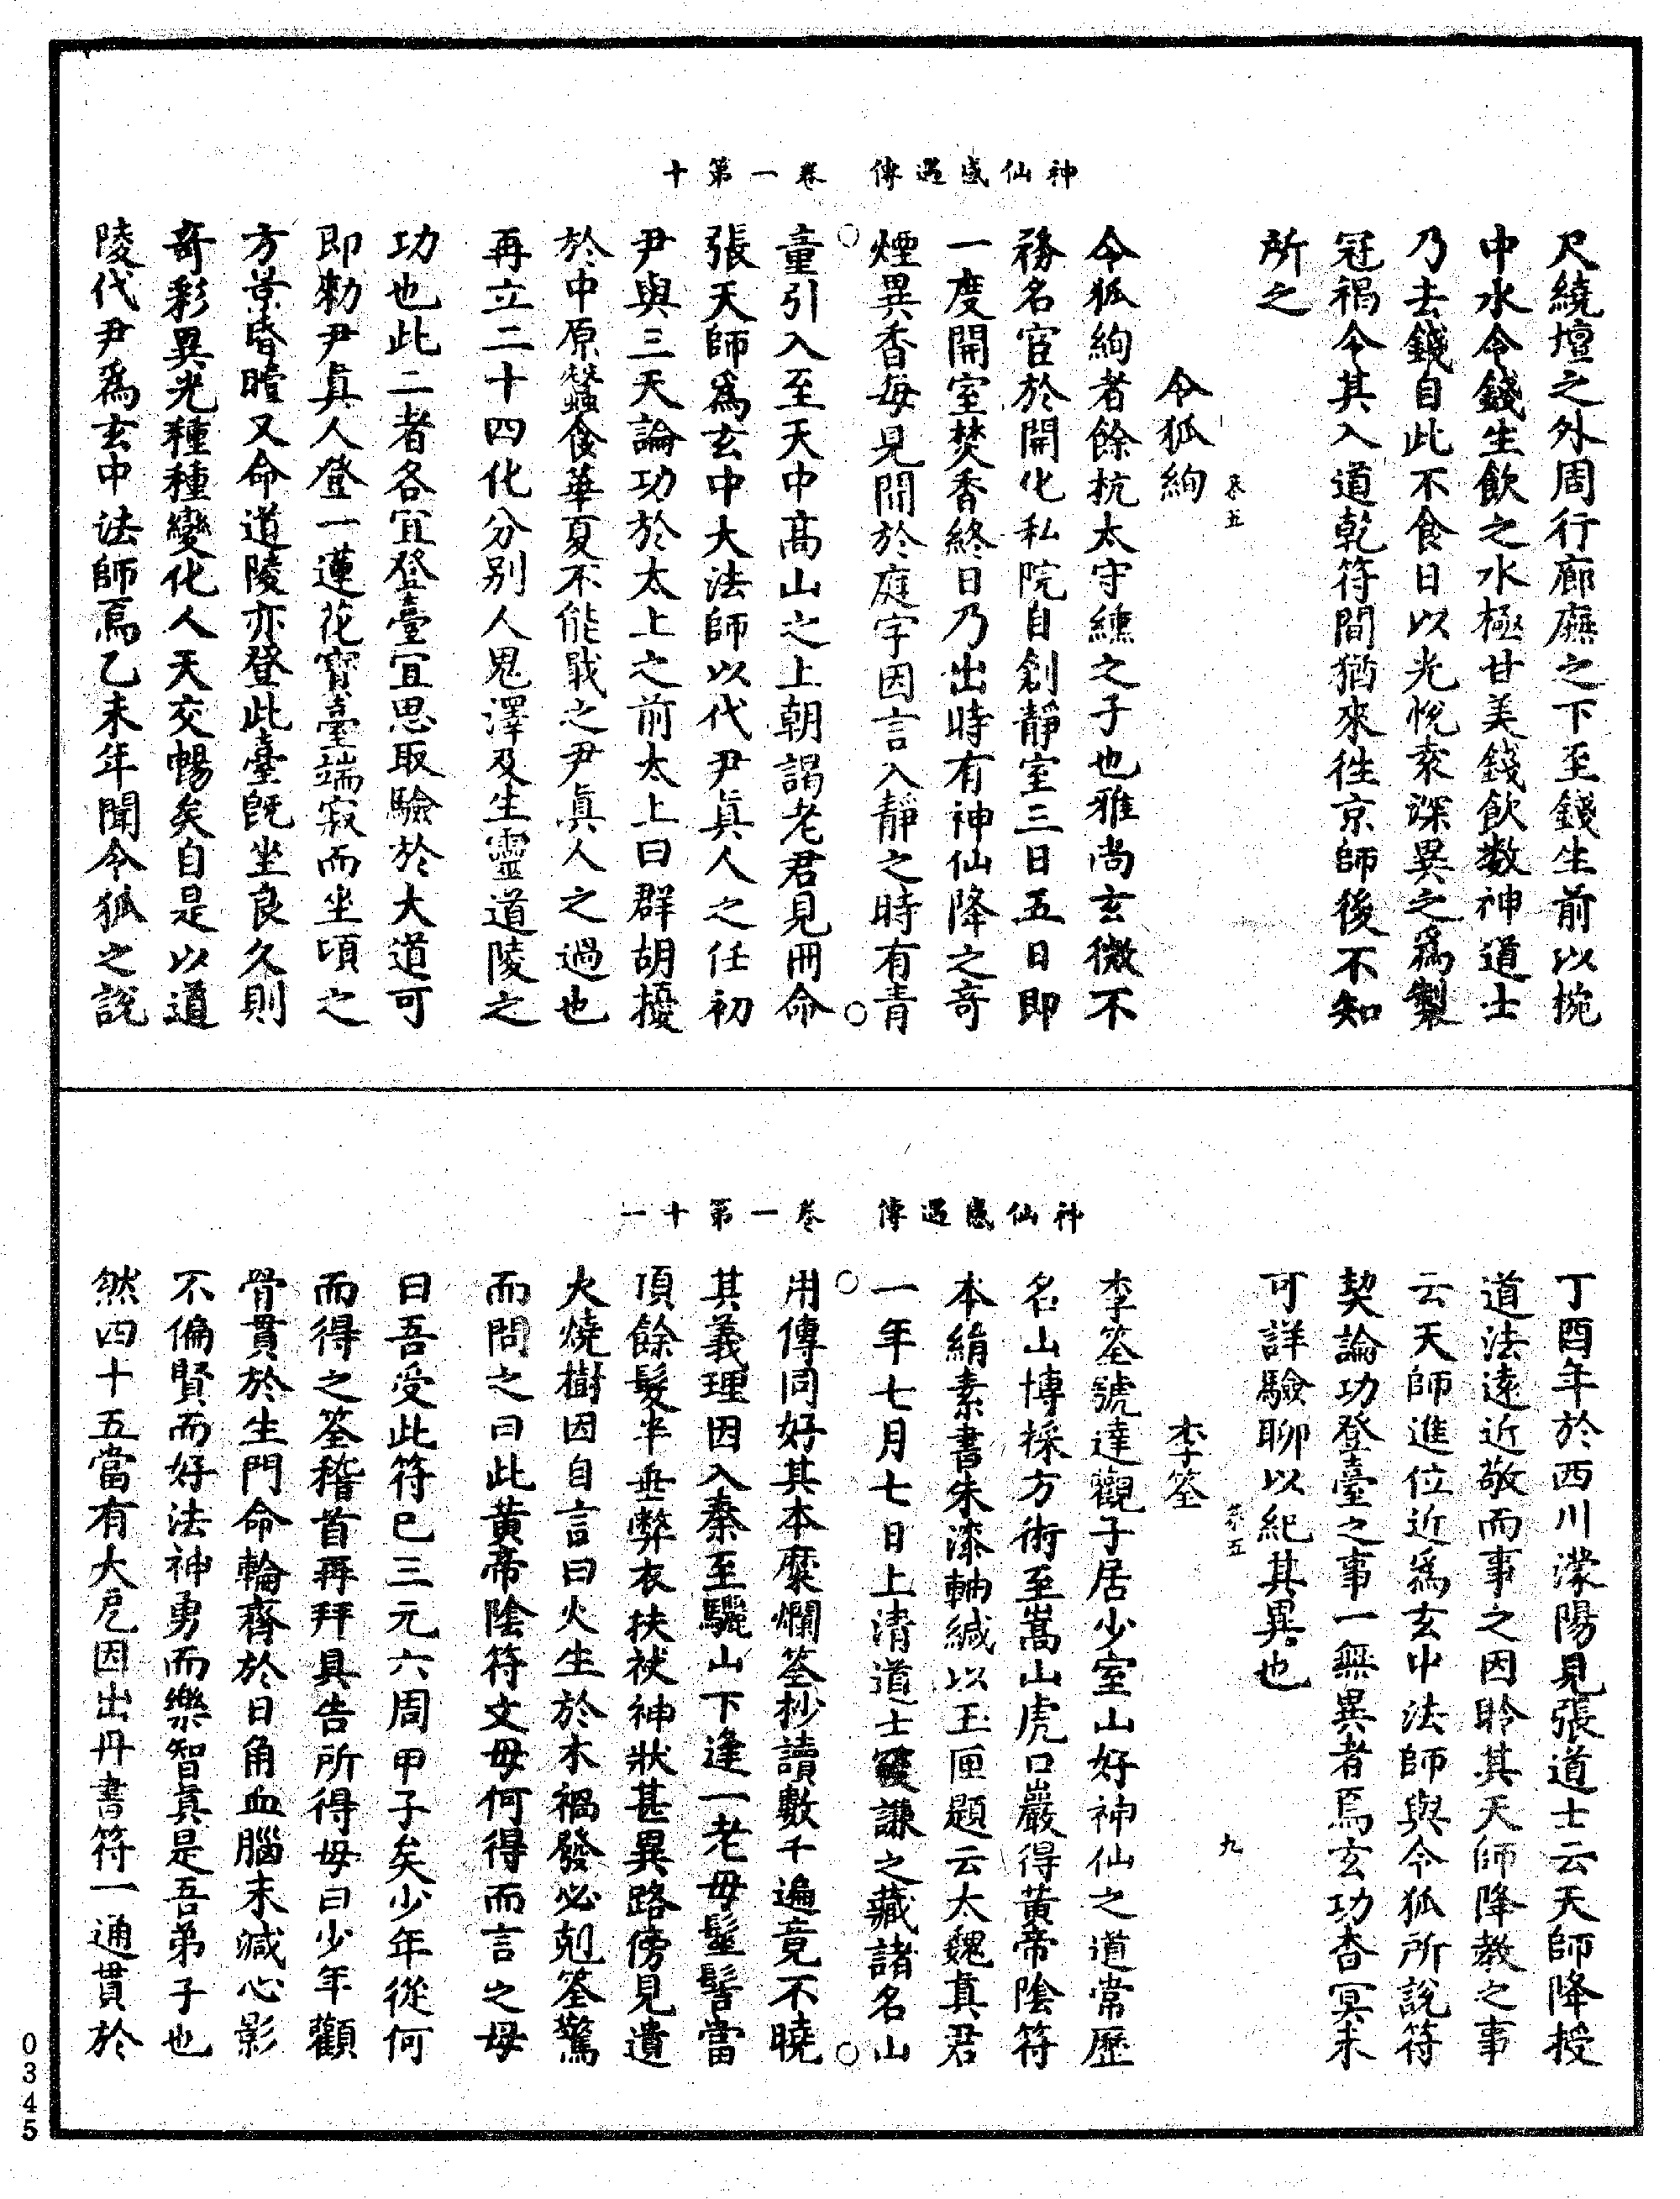 神仙感遇傳 卷一第十
尺繞壇之外周行廊廡之下至錢生前以椀
中水令錢生飲之水極甘美錢飲數神道士
乃去錢自此不食日以光悅素深異之爲製
冠褐令其入道乾符間猶來往京師後不知
所之
恭五
令狐絢
令狐絢者餘杭太守纁之子也雅尚玄微不
務名宦於開化私院自創靜室三日五日即
一度開室焚香終日乃出時有神仙降之奇
煙異香每見聞於庭宇因言入靜之時有青
童引入至天中高山之上朝謁老君見冊命
張天師爲玄中大法師以代尹眞人之任初
尹與三天論功於太上之前太上曰群胡擾
於中原蠶食華夏不能戢之尹眞人之過也
再立二十四化分別人鬼澤及生靈道陵之
功也此二者各宜登臺宜思取驗於大道可
即勑尹眞人登一蓮花寶臺端寂而坐頃之
方景昏曀又命道陵亦登此臺旣坐良久則
奇彩異光種種變化人天交暢矣自是以道
陵代尹爲玄中法師焉乙未年聞令狐之說
神仙感遇傳 卷一第十一
丁酉年於西川濛陽見張道士云天師降授
道法遠近敬而事之因聆其天師降教之事
云天師進位近爲玄中法師與令狐所說符
契論功登臺之事一無異者焉玄功杳冥未
可詳驗聊以紀其異也
恭五 九
李筌
李筌號達觀子居少室山好神仙之道常歷
名山博採方術至嵩山虎口巖得黃帝陰符
本絹素書朱漆軸緘以玉匣題云大魏眞君
一年七月七日上清道士寇謙之藏諸名山
用傳同好其本糜爛筌抄讀數千遍竟不曉
其義理因入秦至驪山下逢一老母髽髻當
頂餘髮半垂弊衣扶杖神狀甚異路傍見遺
火燒樹因自言曰火生於木禍發必剋筌驚
而問之曰此黃帝陰符文母何得而言之母
曰吾受此符已三元六周甲子矣少年從何
而得之筌稽首再拜具告所得母曰少年顴
骨貫於生門命輪齊於日角血腦未減心影
不偏賢而好法神勇而樂智眞是吾弟子也
然四十五當有大厄因出丹書符一通貫於
0345